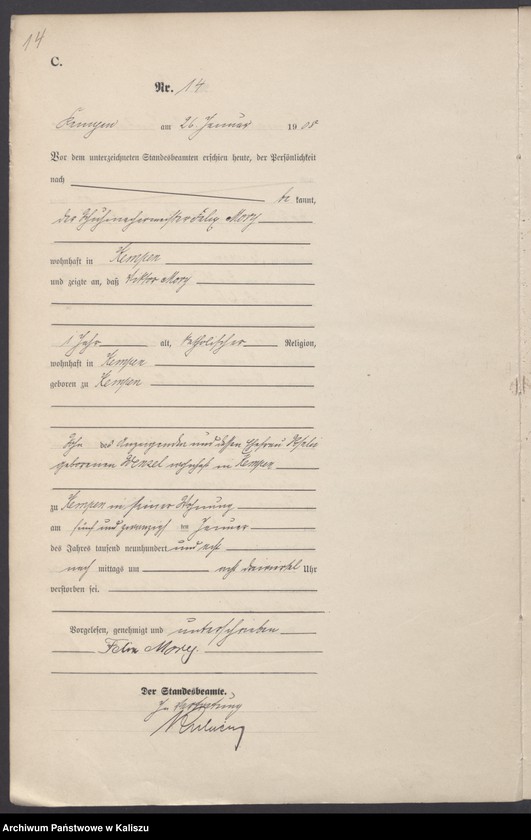 14
C.
Nr. 14
Kempen am 26 Januar 1908
Vor dem unterzeichneten Standesbeamten erschien heute, der Persönlichkeit
nach
be kannt,
der Schuhmachermeister Felix Mory
wohnhaft in Kempen
und zeigte an, daß Viktor Mory
1 Jahr alt, katholischer Religion,
wohnhaft in Kempen
geboren zu Kempen
Sohn des Anzeigenden und dessen Ehefrau
geborenen Wenzel wohnhaft in Kempen
zu Kempen in seiner Wohnung
am fünf und zwanzigsten Januar
des Jahres tausend neunhundert und acht
nach mittags um acht dreiviertel Uhr
verstorben sei.
Vorgelesen, genehmigt und unterschrieben
Felix Mory.
Der Standesbeamte.
In Vertretung
Archiwum Państwowe w Kaliszu